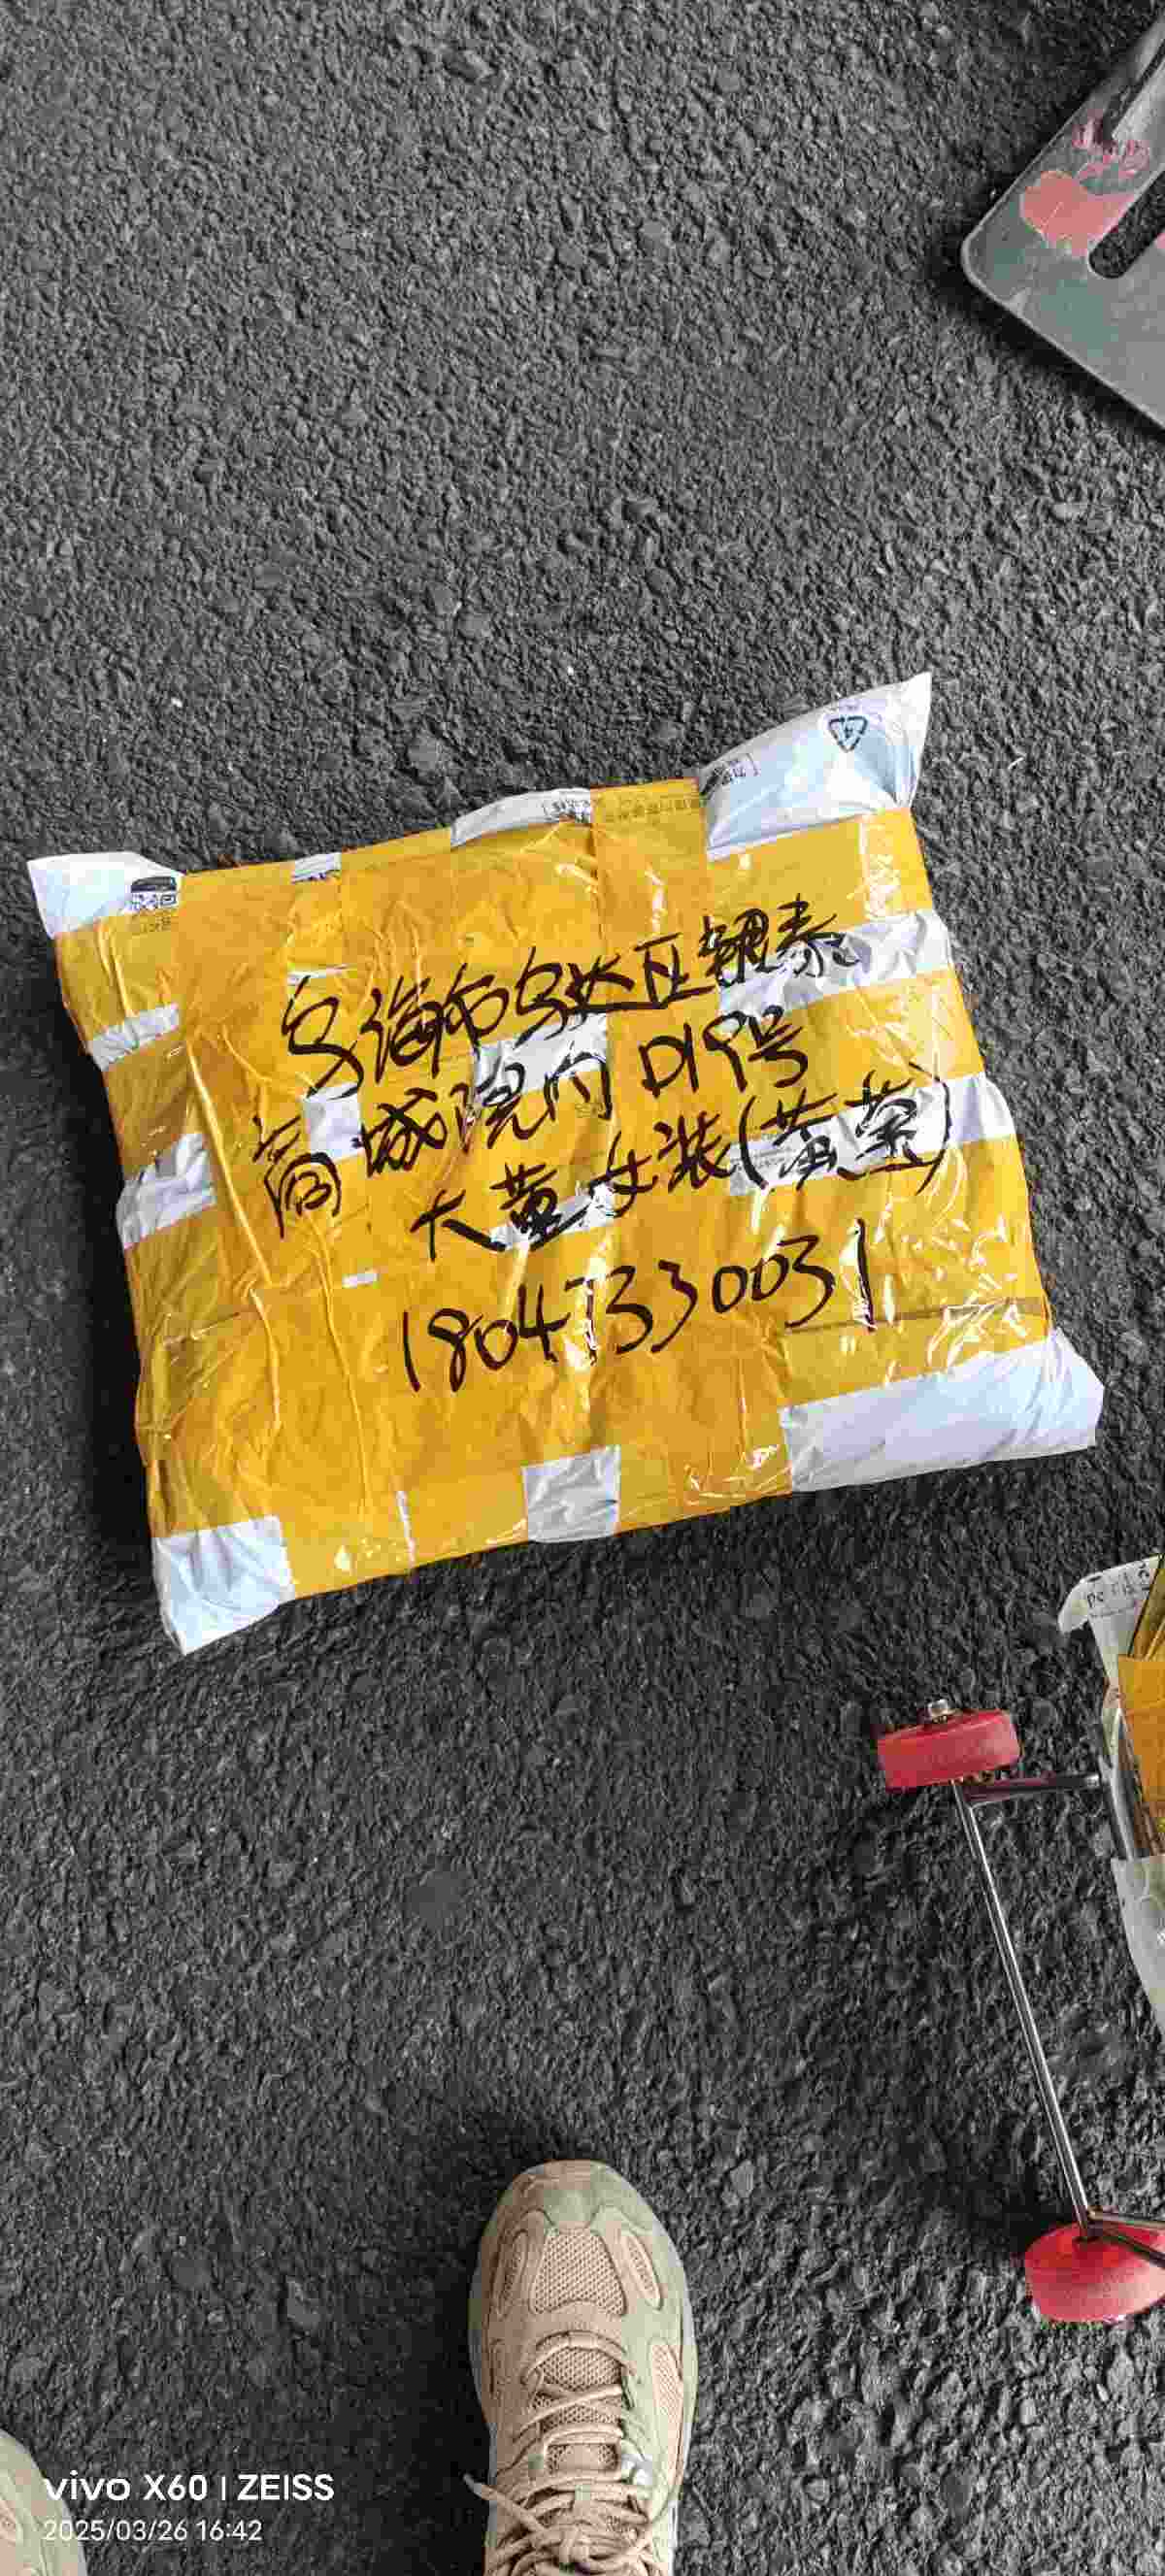 乌海市乌达区鄂泰
商城院内D19号
大董女装(黄莹)
18047330031
vivo X60 | ZEISS
2025/03/26 16:42